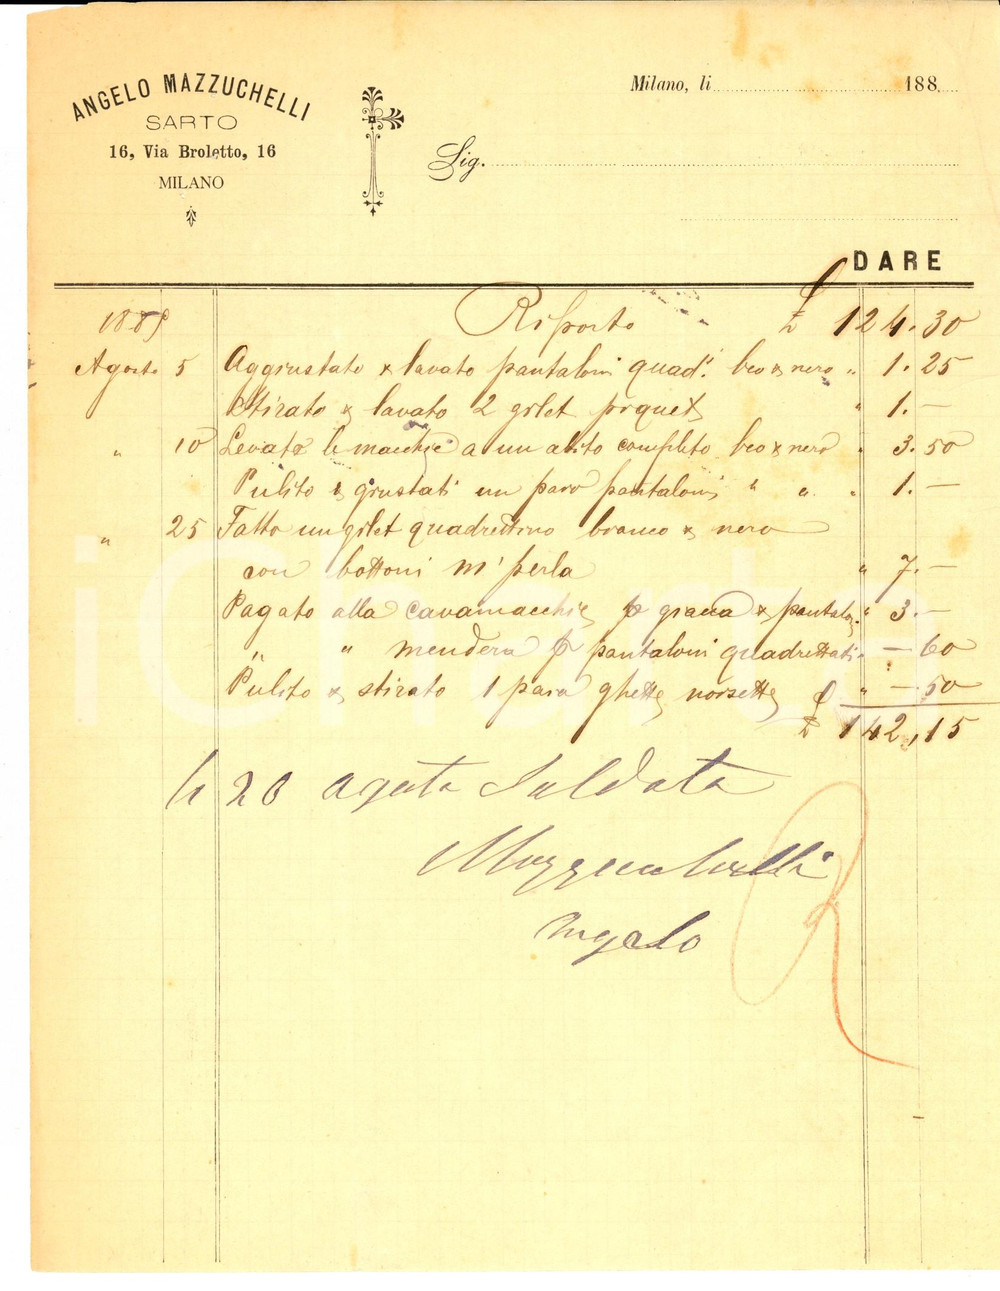 ANGELO MAZZUCHELLI
SARTO
16, Via Broletto, 16
MILANO
Milano, li 188
Sig.
DARE
1889 Riporto £ 124.30
Agosto 5 Aggiustato & lavato pantaloni quad.i bco & nero " 1.25
Stirato & lavato 2 gilet piquet " 1.—
" 10 Levato le macchie a un abito completo bco & nero " 3.50
Pulito & giustati un paro pantaloni " " " 1.—
" 25 Fatto un gilet quadrettino bianco & nero
con bottoni M' perla " 7.—
Pagato alla cavamacchie p giacca & pantalo. " 3.—
" " mendera p pantaloni quadrettati " —60
Pulito & stirato 1 para ghette " —.50
£ 142,15
20 agota Saldata
Mazzucchelli
Angelo
iCharta